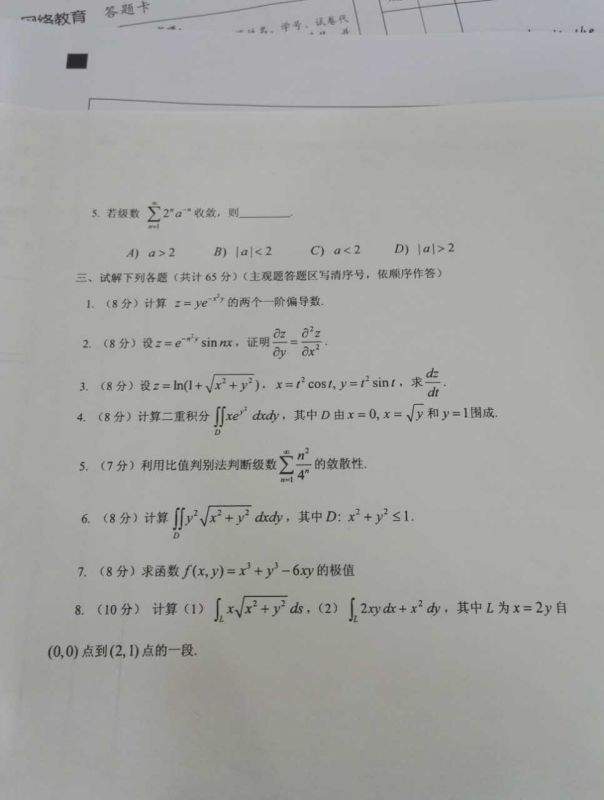 网络教育 答题卡
学号、试卷代
5. 若级数 $\sum_{n=1}^{\infty} 2^n a^{-n}$ 收敛，则______.
A) $a>2$ B) $|a|<2$ C) $a<2$ D) $|a|>2$
三、试解下列各题（共计 65 分）（主观题答题区写清序号，依顺序作答）
1. （8 分）计算 $z=ye^{-x^2y}$ 的两个一阶偏导数.
2. （8 分）设 $z=e^{-n^2y}\sin nx$，证明 $\frac{\partial z}{\partial y}=\frac{\partial^2 z}{\partial x^2}$.
3. （8 分）设 $z=\ln(1+\sqrt{x^2+y^2})$，$x=t^2\cos t, y=t^2\sin t$，求 $\frac{dz}{dt}$.
4. （8 分）计算二重积分 $\iint_D xe^{y^2}dxdy$，其中 D 由 $x=0, x=\sqrt{y}$ 和 $y=1$ 围成.
5. （7 分）利用比值判别法判断级数 $\sum_{n=1}^{\infty}\frac{n^2}{4^n}$ 的敛散性.
6. （8 分）计算 $\iint_D y^2\sqrt{x^2+y^2}\,dxdy$，其中 $D: x^2+y^2\le 1$.
7. （8 分）求函数 $f(x,y)=x^3+y^3-6xy$ 的极值
8. （10 分） 计算（1）$\int_L x\sqrt{x^2+y^2}\,ds$，（2）$\int_L 2xy\,dx+x^2\,dy$，其中 $L$ 为 $x=2y$ 自
$(0,0)$ 点到 $(2,1)$ 点的一段.